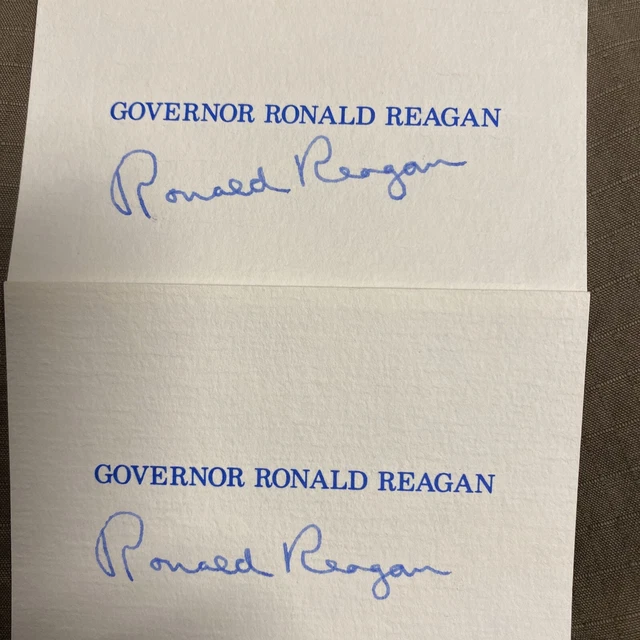 GOVERNOR RONALD REAGAN
Ronald Reagan
GOVERNOR RONALD REAGAN
Ronald Reagan